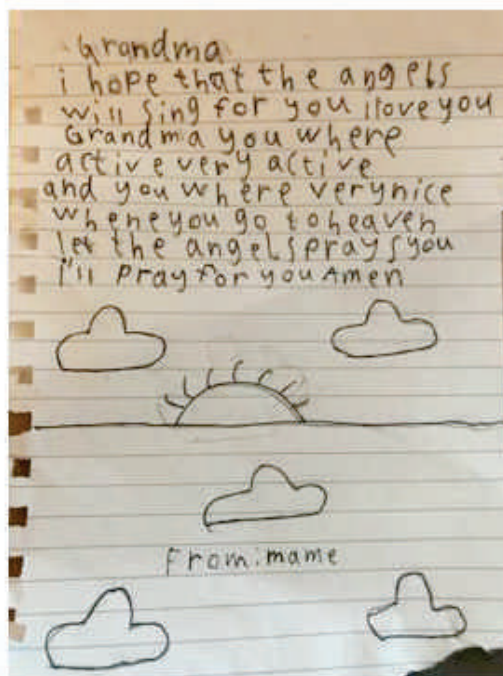 Grandma
i hope that the angels
will sing for you i love you
Grandma you where
active very active
and you where very nice
whene you go to heaven
let the angels prays you
i'll pray for you Amen
From: mame